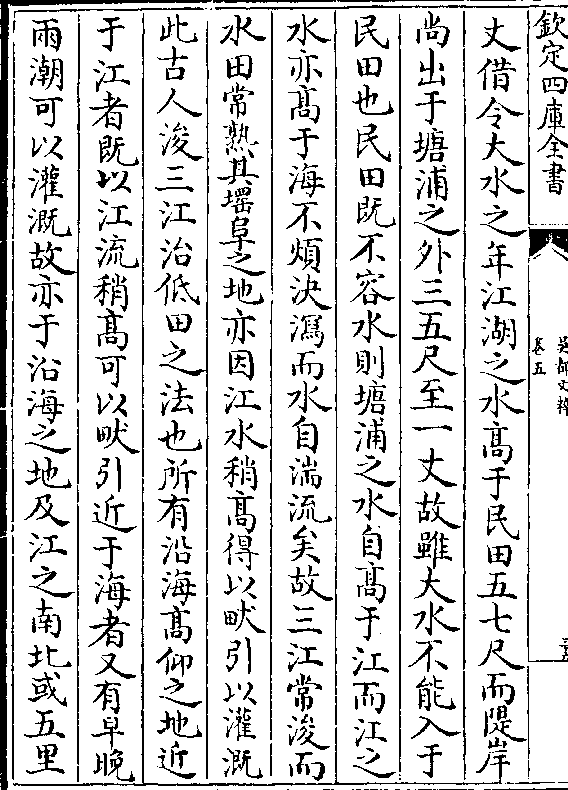 欽定四庫全書
吳都文粹
卷五
丈借令大水之年江湖之水髙于民田五七尺而隄岸
尚出于塘浦之外三五尺至一丈故雖大水不能入于
民田也民田既不容水則塘浦之水自髙于江而江之
水亦髙于海不煩決瀉而水自湍流矣故三江常浚而
水田常熟其堽阜之地亦因江水稍髙得以畎引以灌溉
此古人浚三江治低田之法也所有沿海髙仰之地近
于江者既以江流稍髙可以畎引近于海者又有早晚
兩潮可以灌溉故亦于沿海之地及江之南北或五里